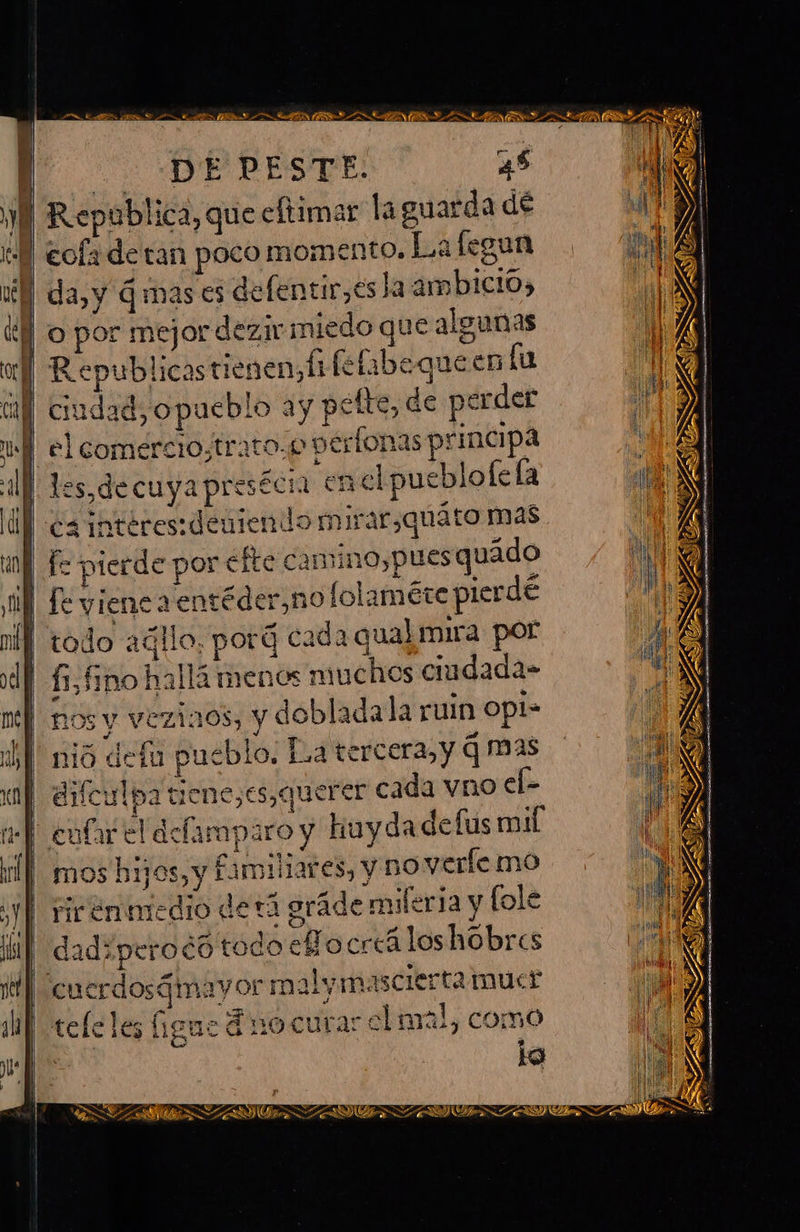 DE PESTE. 45
Republica, que eſtimar la guarda de
coſa de tan poco momento. La ſegun
da, y q̃ mas es deſentir, es la ambiciõ,
o por mejor dezir miedo que algunas
Republicas tienen, ſi ſe ſabe que en ſu
ciudad, o pueblo ay peſte, de perder
el comercio, trato, o perſonas principa
les, de cuya presẽcia en el pueblo ſe ſa
ca interes: deuiendo mirar, quãto mas
ſe pierde por eſte camino, pues quãdo
ſe viene a entẽder, no ſolamẽte pierdẽ
todo aq̃llo, porq̃ cada qual mira por
ſi, ſino hallã menos muchos ciudada-
nos y vezinos, y doblada la ruin opi-
niõ de ſu pueblo. La tercera, y q̃ mas
diſculpa tiene, es, querer cada vno eſ-
cuſar el deſamparo y huyda de ſus miſ
mos hijos, y familiares, y no verſe mo
rir en medio de tã grãde miſeria y ſole
dad: pero cõ todo eſſo creã los hõbres
cuerdos q̃ mayor mal y mas cierta muer
te ſe les ſigue d̃ no curar el mal, como
lo